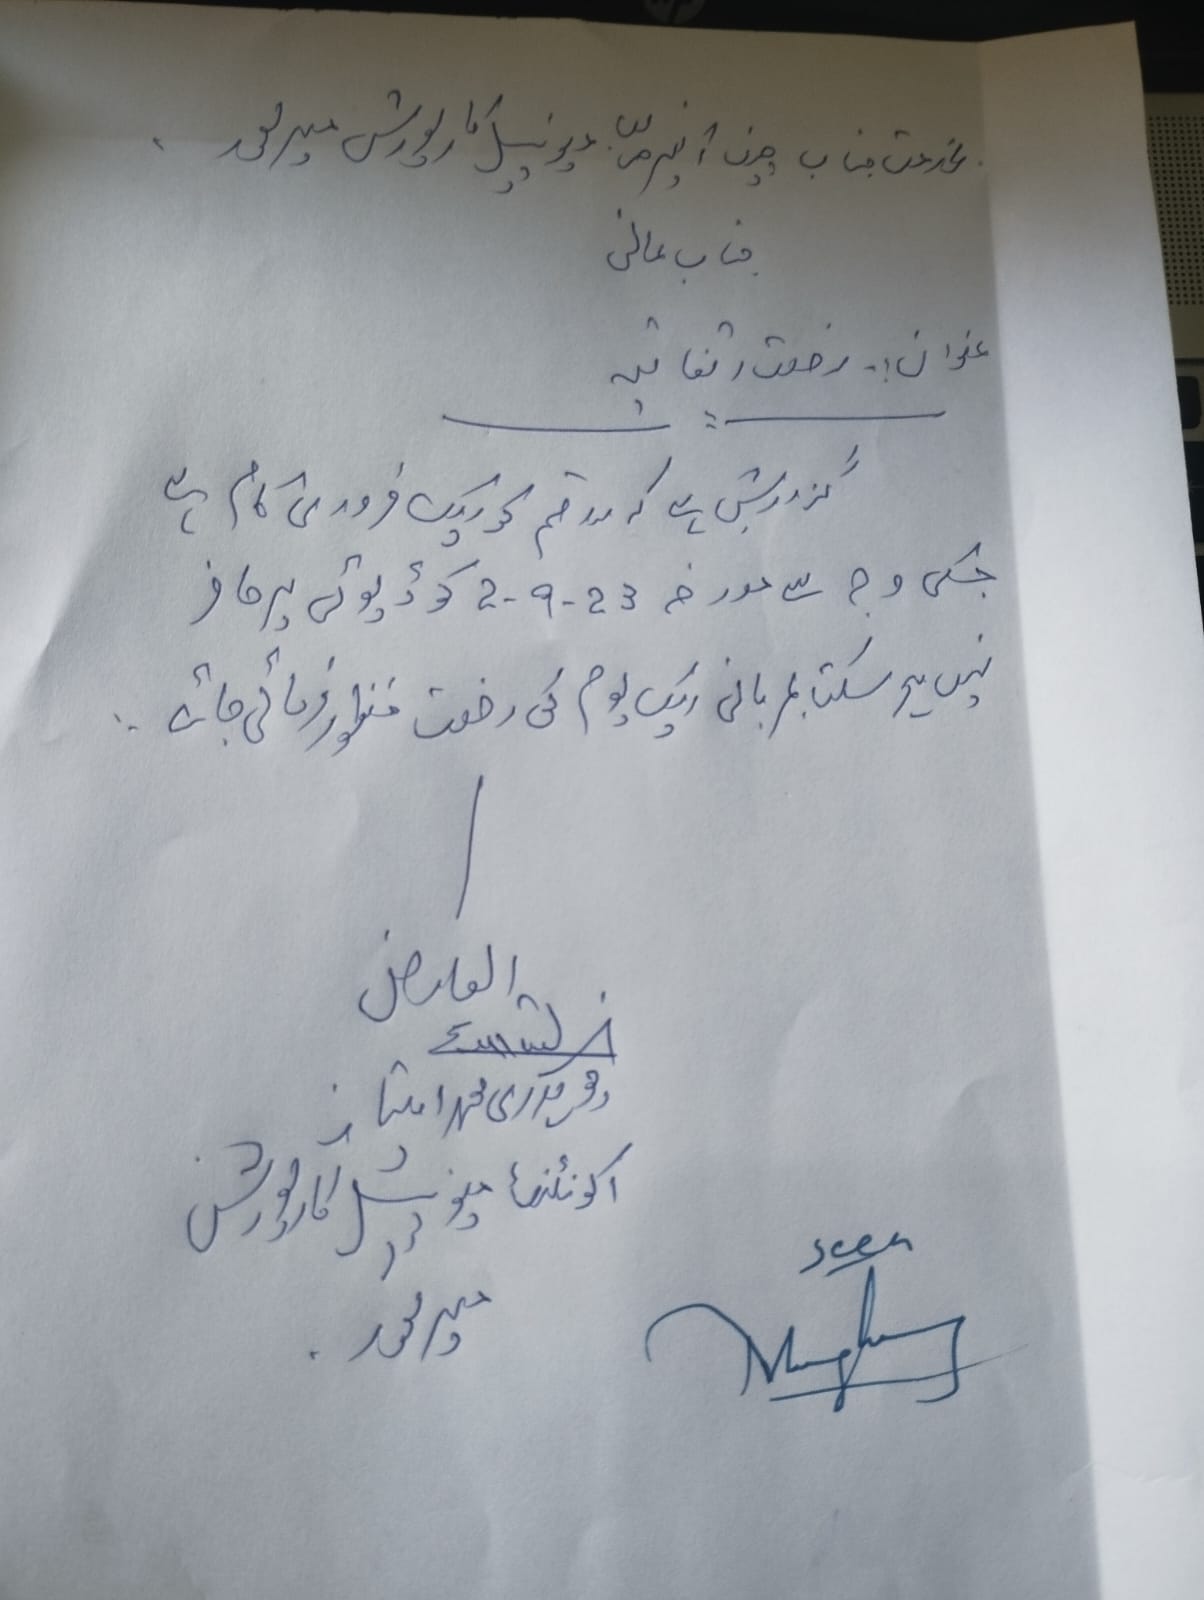 بخدمت جناب چیف آفیسر صاحب میونسپل کارپوریشن میرپور۔
جناب عالی
عنوان:- رخصت اتفاقیہ
گزارش ہے کہ راقم کو ایک ضروری کام ہے
جسکی وجہ سے مورخہ 2-9-23 کو ڈیوٹی پر حاضر
نہیں ہو سکتا بمہربانی ایک یوم کی رخصت منظور فرمائی جائے۔
العارض
محمد امتیاز
اکاونٹنٹ میونسپل کارپوریشن
میرپور۔
seen